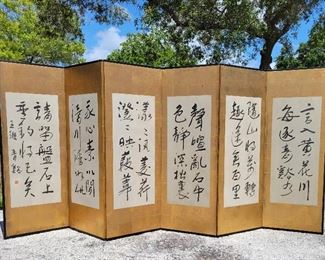 言入黄花川
毎逐青谿水
隨山将万轉
趣途無百里
聲喧亂石中
色静深松裏
漾〻泛菱荇
澄〻映葭葦
我心素以閑
清川澹如此
請留盤石上
垂釣将已矣